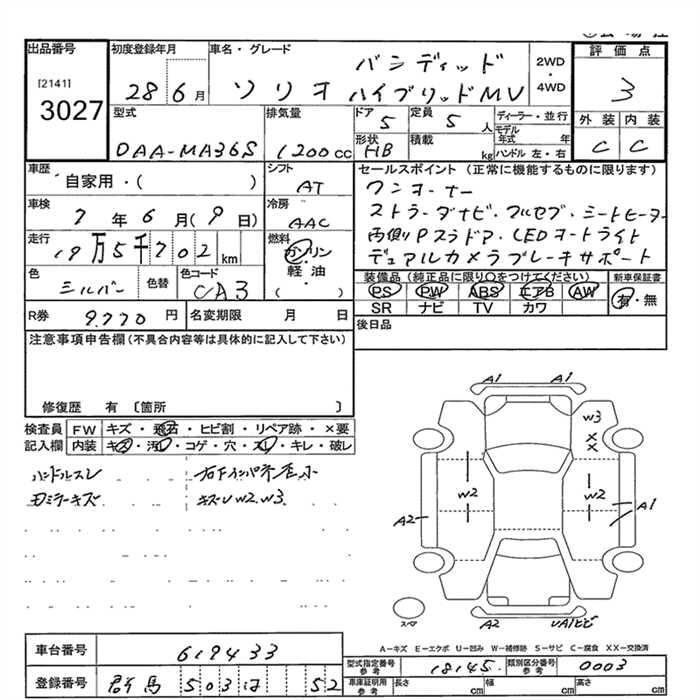 出品番号
[2141]
3027
初度登録年月
28 6月
車名・グレード
バンディッド
ソリオ ハイブリッドMV
2WD
・
4WD
評価点
3
外装 内装
C C
型式
DAA-MA36S
排気量
1200cc
ドア
5
定員
5人
形状
HB
積載
kg
ディーラー・並行
モデル
年式 年
ハンドル 左・右
車歴
自家用・( )
シフト
AT
車検
7年6月(9日)
冷房
AAC
走行
19万5千702km
燃料
ガソリン
軽油
( )
色
シルバー
色替
色コード
CA3
セールスポイント(正常に機能するものに限ります)
ワンオーナー
ストラーダナビ・フルセグ・シートヒーター
両側Pスラドア・LEDオートライト
デュアルカメラブレーキサポート
装備品(純正品に限り○をつけてください)
PS PW ABS エアB AW
SR ナビ TV カワ
新車保証書
有・無
R券
9.770円
名変期限 月 日
後日品
注意事項申告欄(不具合内容等は具体的に記入して下さい)
修復歴 有〔箇所 〕
検査員
記入欄
FW キズ・飛石・ヒビ割・リペア跡・×要
内装 キズ・汚レ・コゲ・穴・スレ・キレ・破レ
ハンドルスレ
キズU W2.W3.
A1 A1
W3
XX
W2 W2
A2 A1
A2 UA1ヒビ
スペア
A-キズ E-エクボ U-凹み W-補修跡 S-サビ C-腐食 XX-交換済
車台番号
619433
登録番号
群馬503は 52
型式指定番号
参考
18145
類別区分番号
参考
0003
車庫証明用
参考
長さ cm
幅 cm
高さ cm